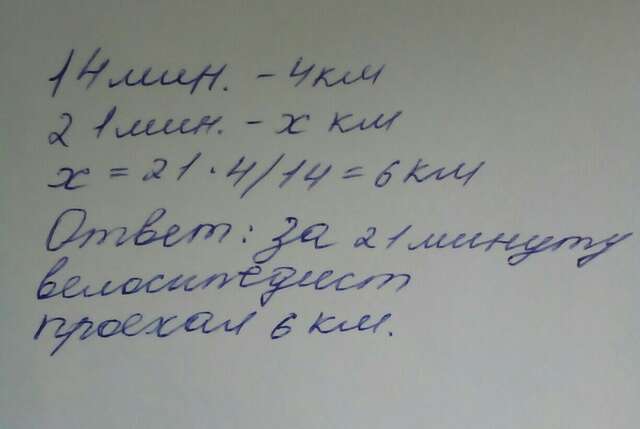 14мин. - 4км
21мин. - x км
x = 21 · 4/14 = 6 км
Ответ: за 21 минуту
велосипедист
проехал 6 км.